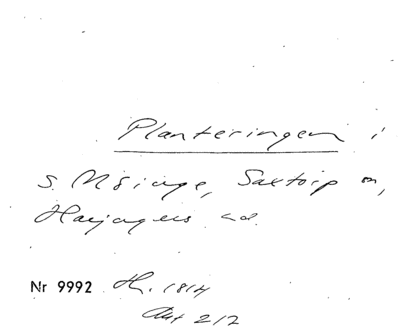 Planteringen i
S. Möinge, Saxtorp sn,
Harjagers hd.
Nr 9992 Hr. 1814
Akt 212